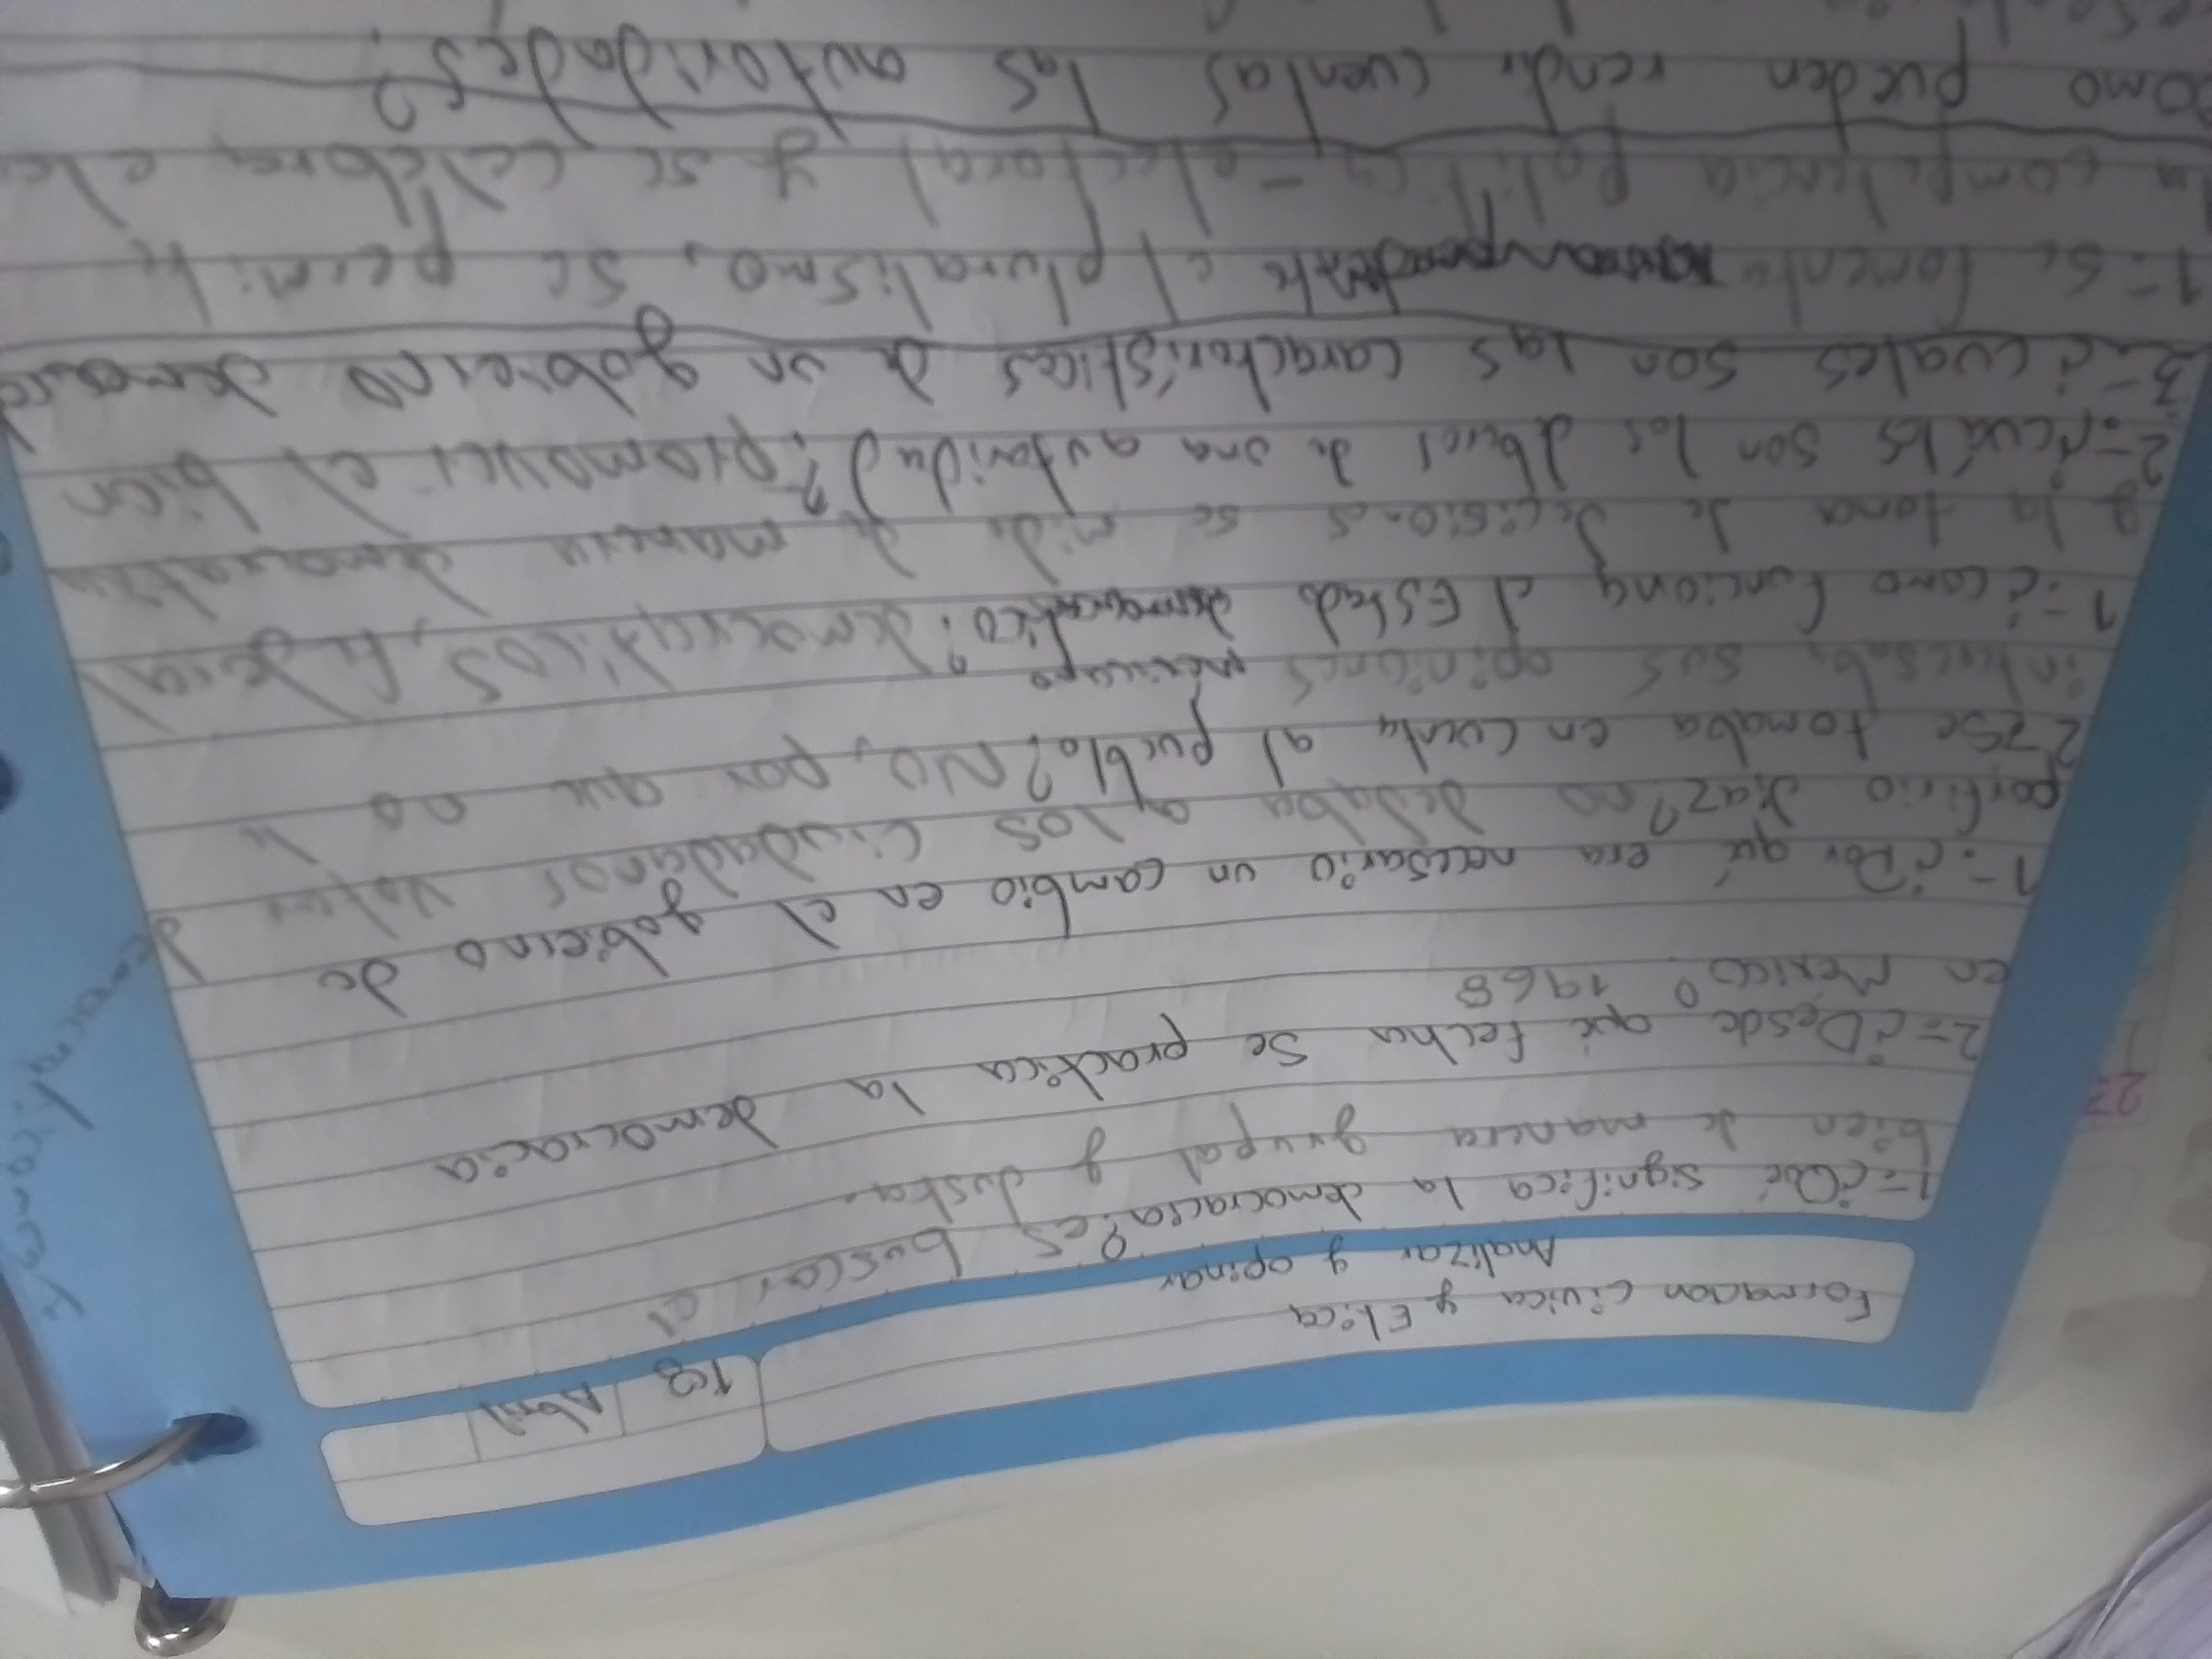 Formacion Cívica y Etica
Analizar y opinar
13 Abril
1=¿Qué significa la democracia? es buscar el
bien de manera grupal y Justa
2=¿Desde qué fecha se practica la democracia
en Mexico? 1968
1=¿Por qué era necesario un cambio en el gobierno de
porfirio diaz? no dejaba a los ciudadanos votar
2=Se tomaba en cuenta al pueblo? NO, por que no le
interesaba sus opiniones
1=¿como funciona el Estado mexicano democratico? democraticos, federal
y la toma de decisiones se mide de manera democratica
2=¿cuáles son los deberes de una autoridad? promover el bien
3=¿cuales son las características de un gobierno
1=se fomenta el pluralismo, se permite
la competencia política-electoral y se celebra
como pueden rendir cuentas las autoridades?
democráticamente